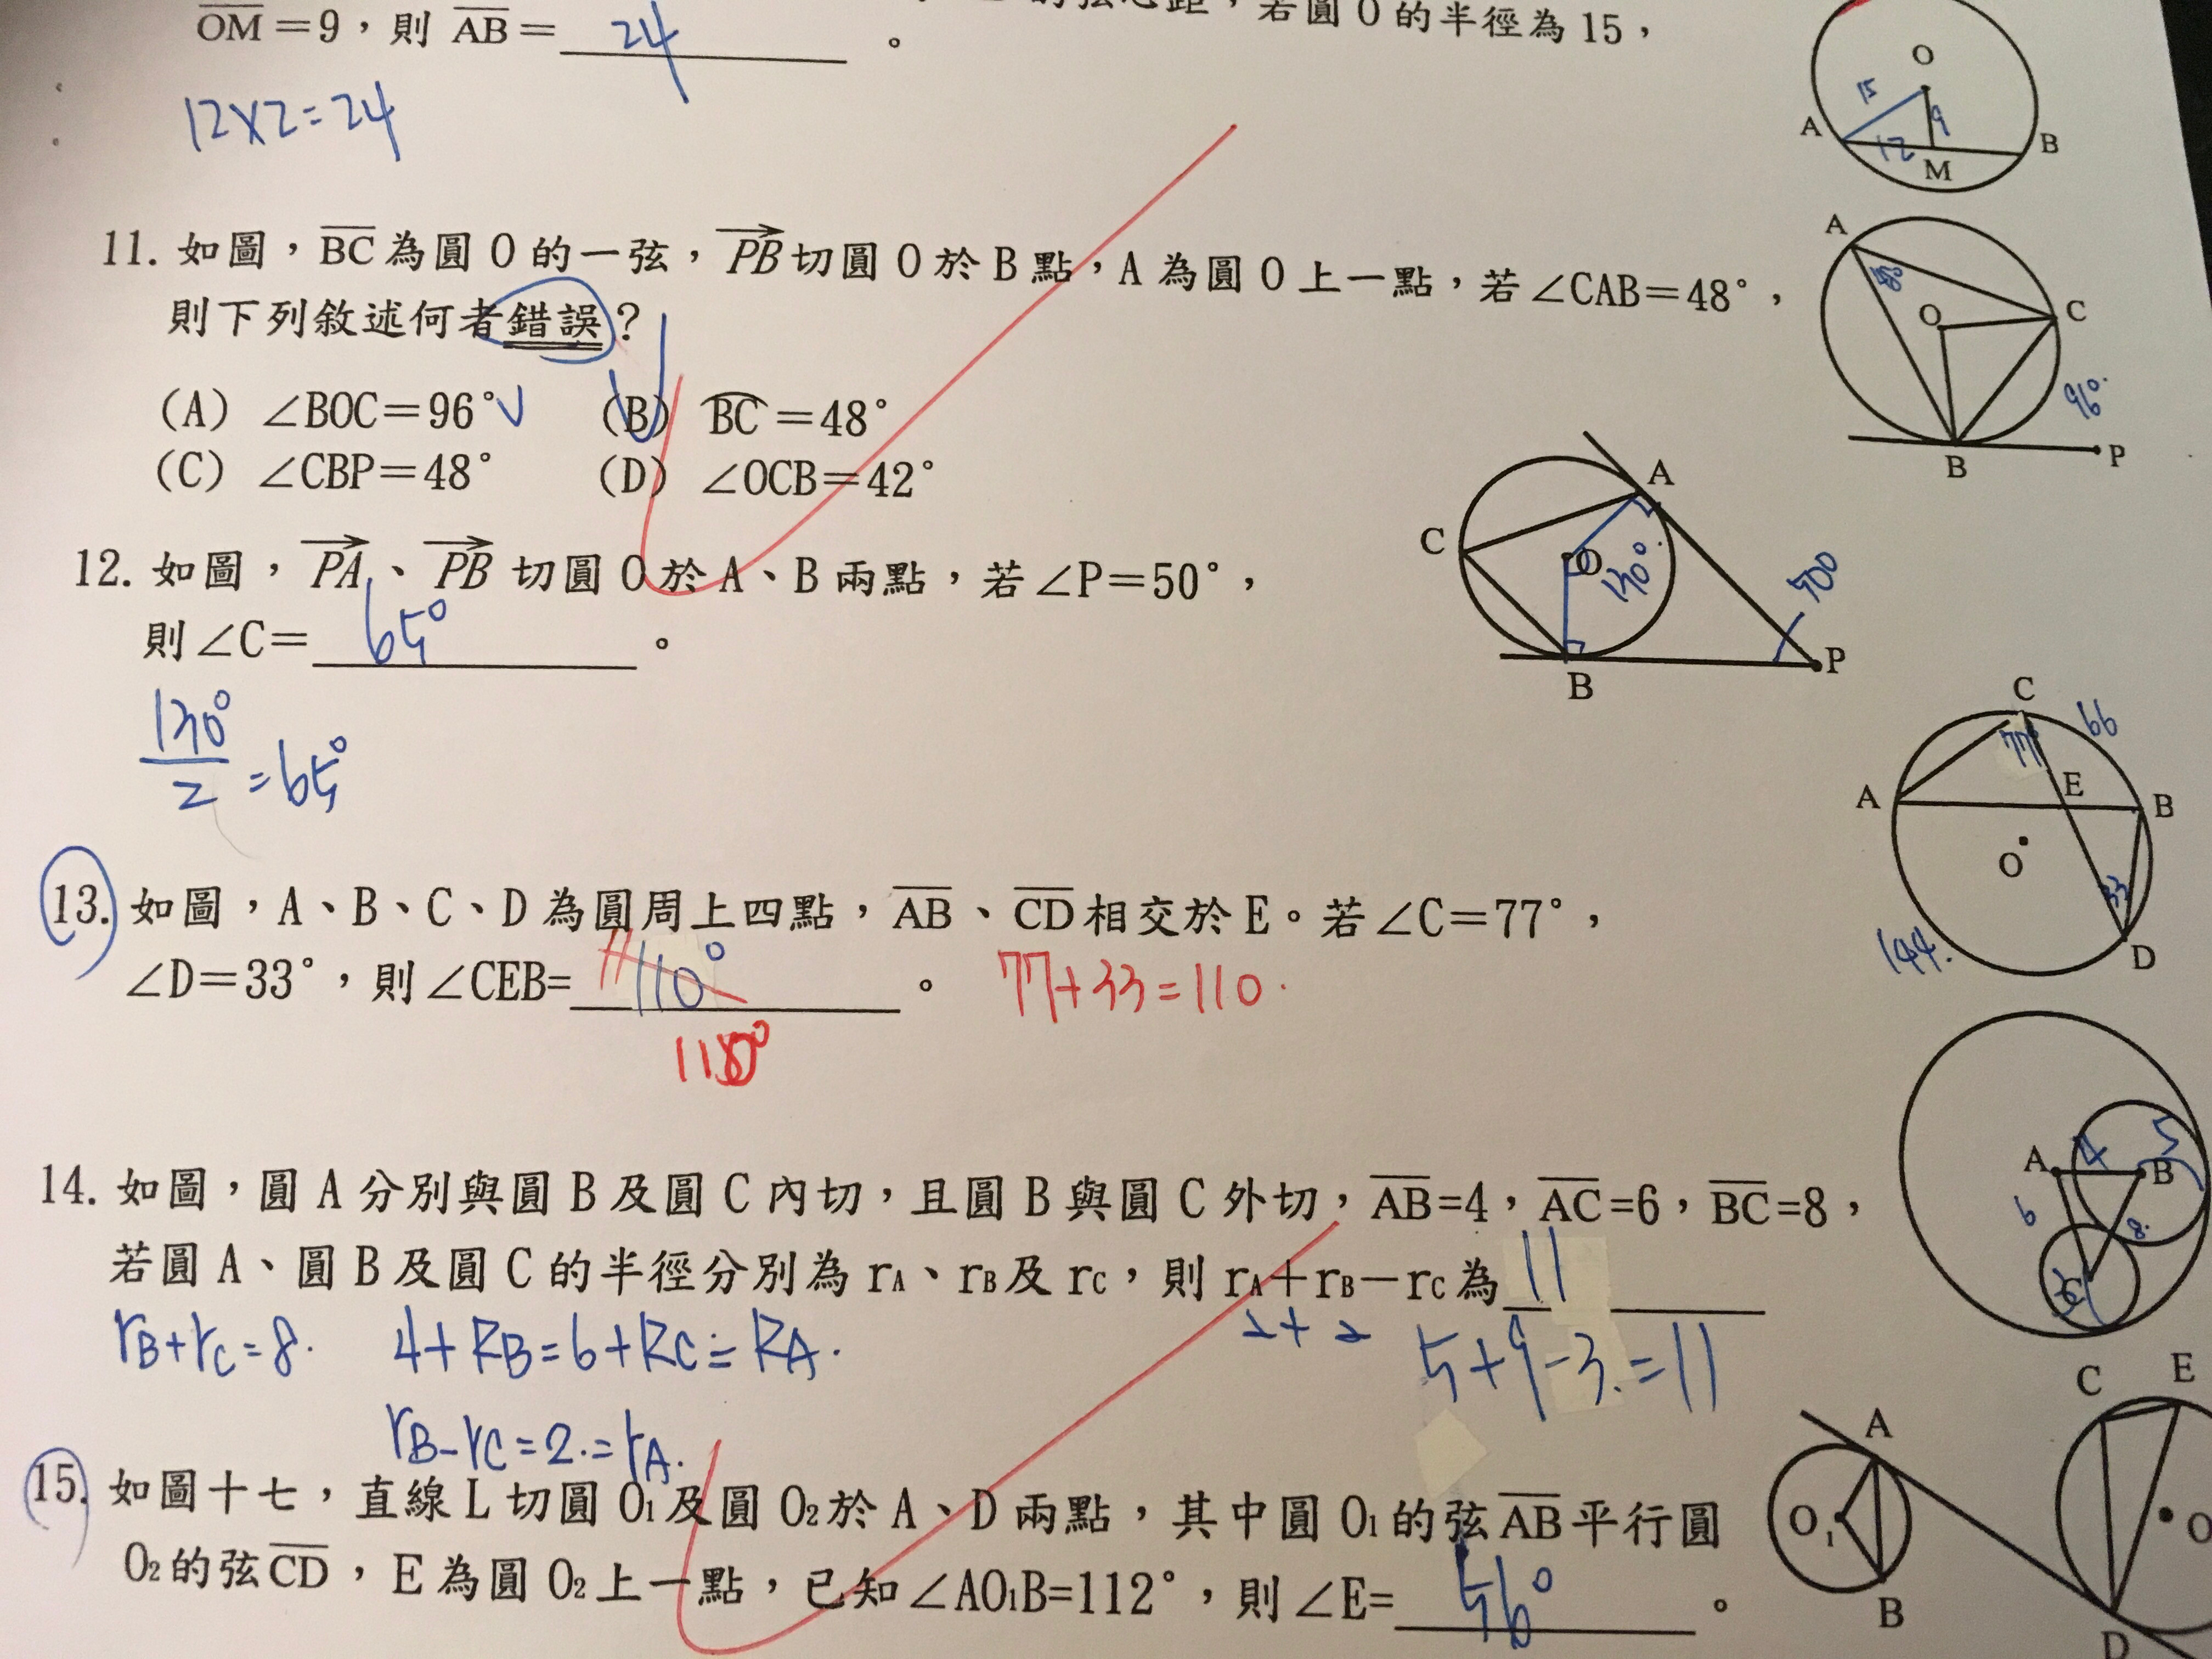 的弦心距，若圓 O 的半徑為 15，
OM＝9，則 AB＝ 24 。
12×2=24
O
15
9
A
12
M
B
11. 如圖，BC 為圓 O 的一弦，PB 切圓 O 於 B 點，A 為圓 O 上一點，若 ∠CAB＝48°，
則下列敘述何者錯誤？
(A) ∠BOC＝96° (B) BC＝48°
(C) ∠CBP＝48° (D) ∠OCB＝42°
A
48°
O
C
96°
B
P
12. 如圖，PA、PB 切圓 O 於 A、B 兩點，若 ∠P＝50°，
則 ∠C＝ 65° 。
130°/2 =65°
A
C
O
130°
50°
B
P
13. 如圖，A、B、C、D 為圓周上四點，AB、CD 相交於 E。若 ∠C＝77°，
∠D＝33°，則 ∠CEB= 110° 。 77+33=110.
110°
C
66
77°
A
E
B
O
33
144.
D
14. 如圖，圓 A 分別與圓 B 及圓 C 內切，且圓 B 與圓 C 外切，AB=4，AC=6，BC=8，
若圓 A、圓 B 及圓 C 的半徑分別為 rA、rB 及 rC，則 rA＋rB－rC 為 11
rB+rC=8. 4+RB=6+RC=RA. 5+9-3.=11
rB-rC=2.=rA.
A
4
5
B
6
8.
C
15. 如圖十七，直線 L 切圓 O1 及圓 O2 於 A、D 兩點，其中圓 O1 的弦 AB 平行圓
O2 的弦 CD，E 為圓 O2 上一點，已知 ∠AO1B=112°，則 ∠E= 56° 。
C
E
A
O1
O
B
D